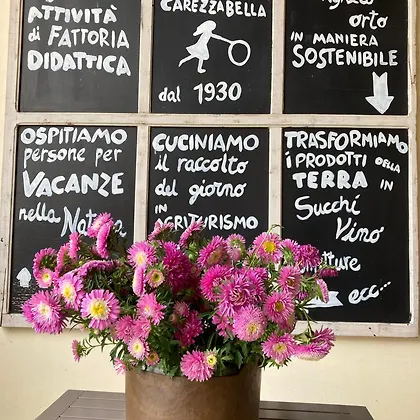 ATTIVITÀ
di FATTORIA
DIDATTICA
CAREZZABELLA
dal 1930
orto
IN MANIERA
SOSTENIBILE
OSPITIAMO
persone per
VACANZE
nella Natura
CUCINIAMO
il raccolto
del giorno
IN
AGRITURISMO
TRASFORMIAMO
i PRODOTTI DELLA
TERRA IN
Succhi
Vino
ecc...